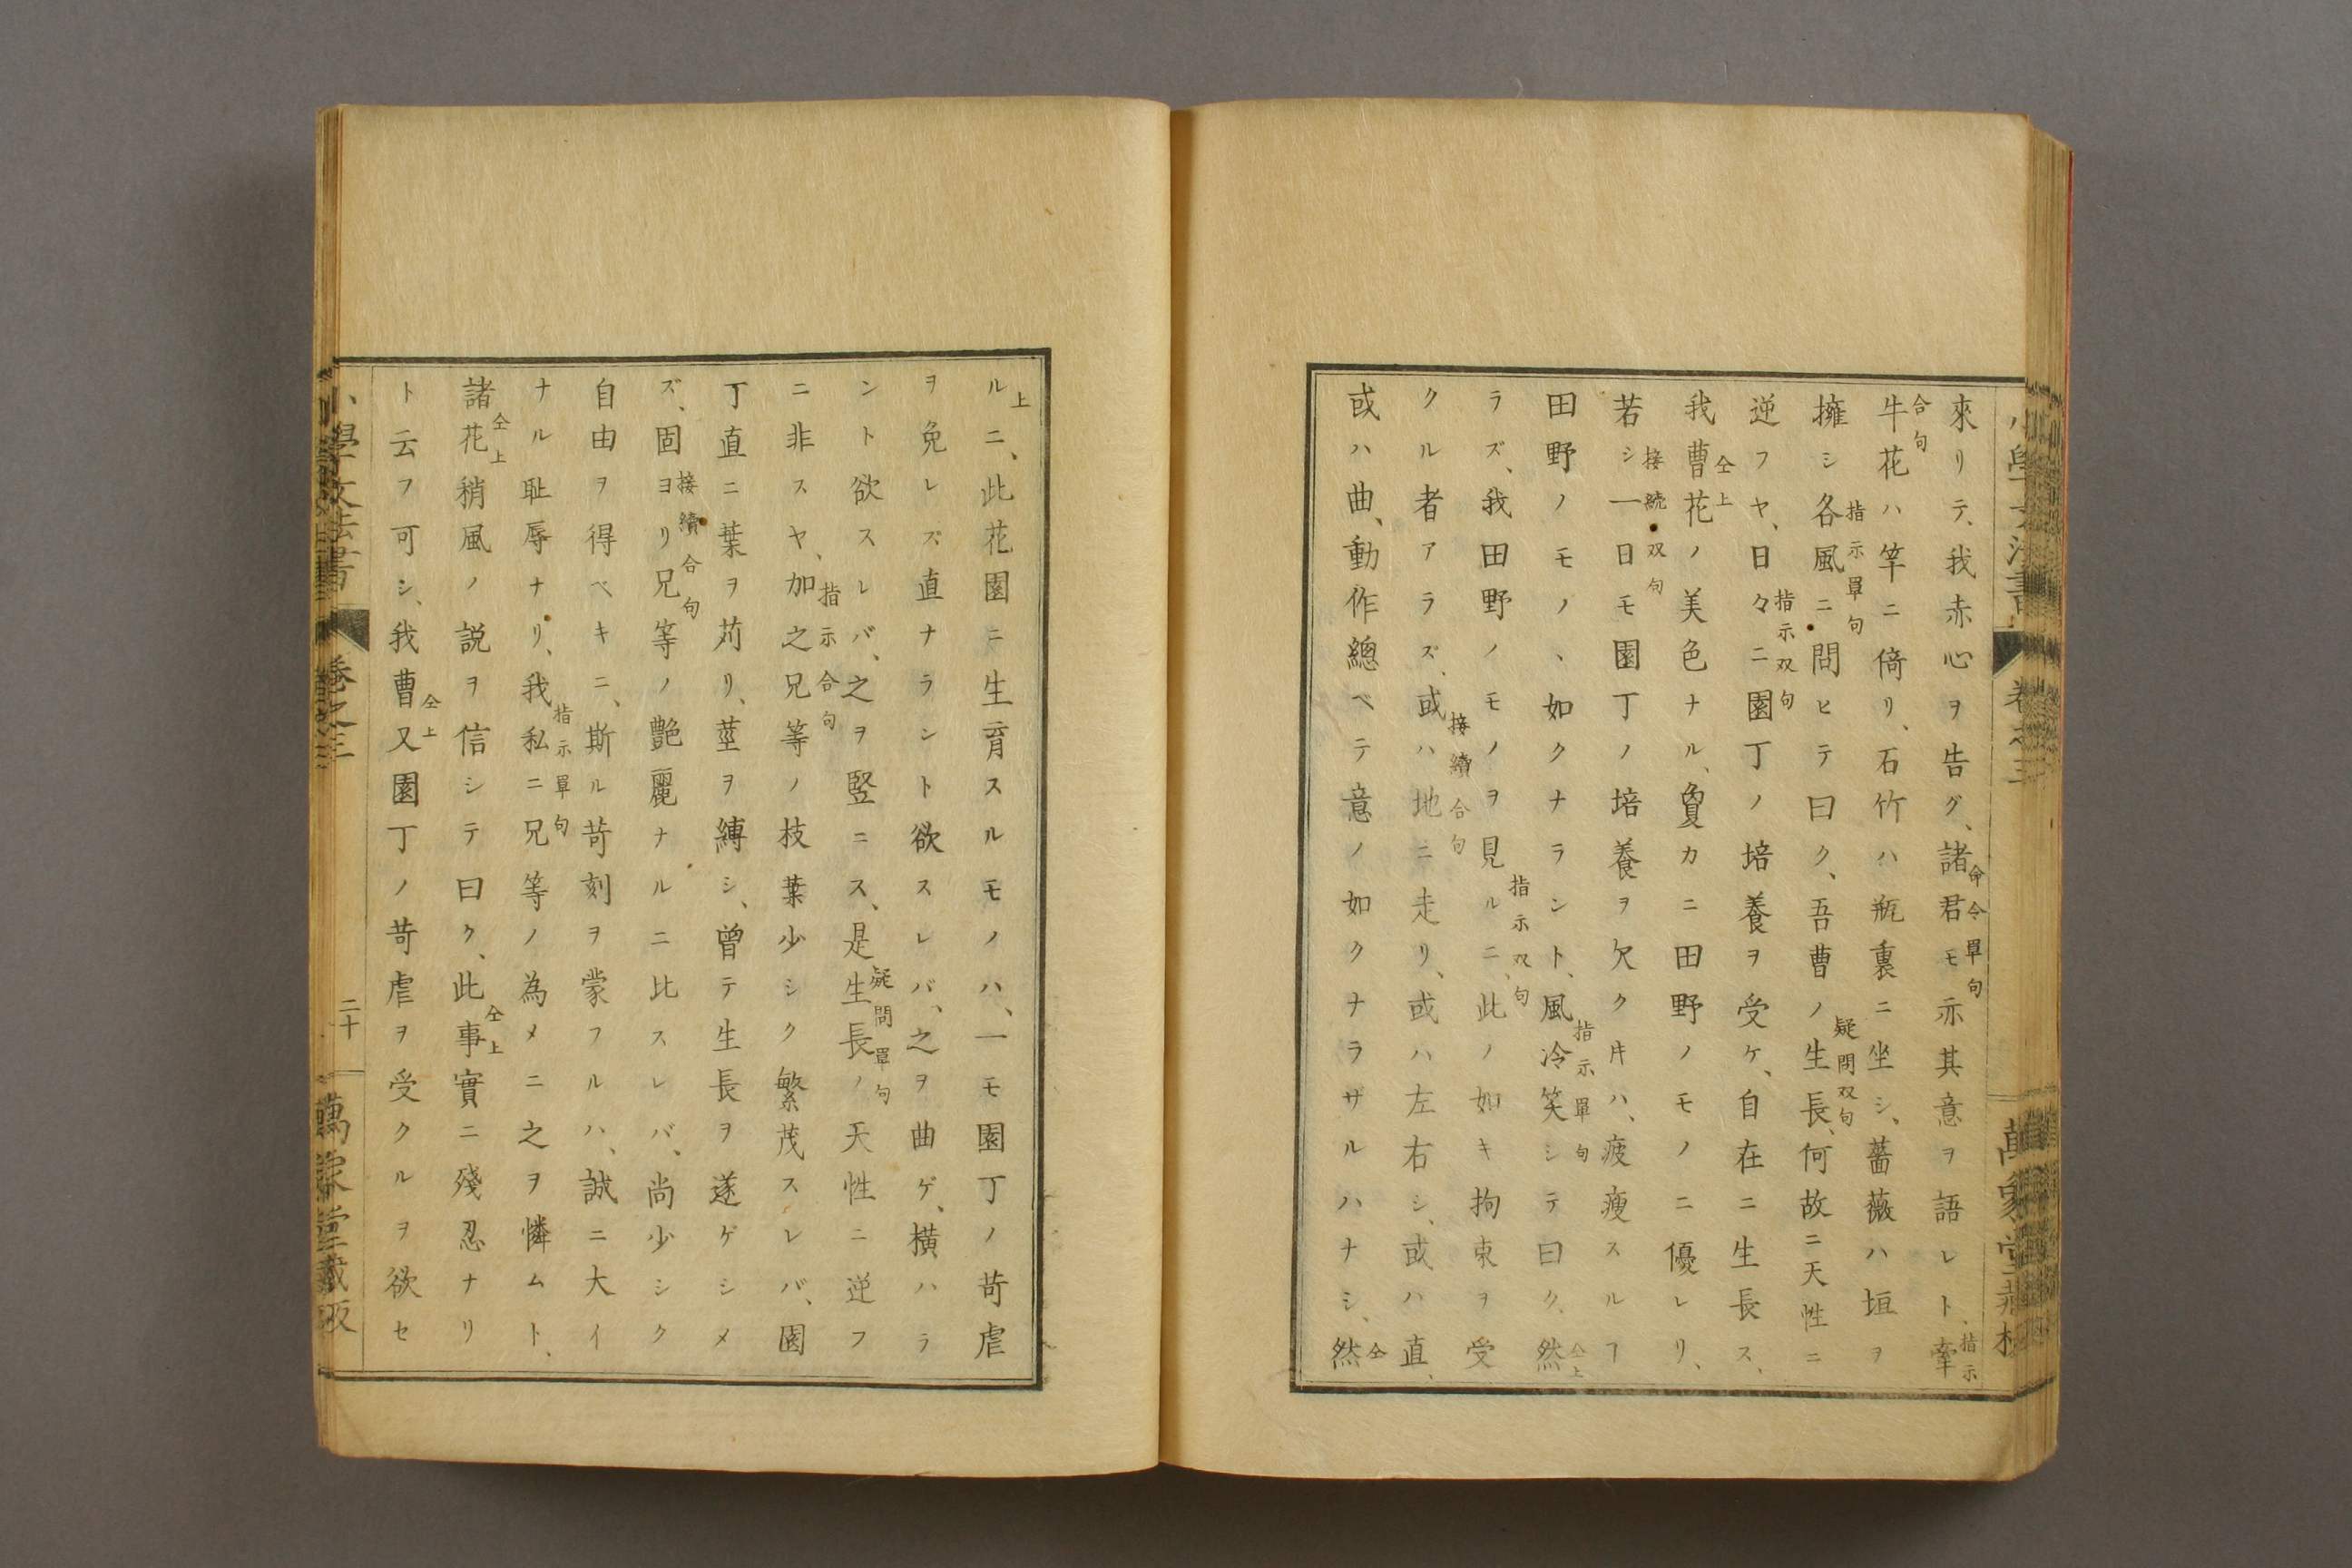 來リテ、我赤心ヲ告グ、諸君モ亦其意ヲ語レト、牽
命令單句
指示
牛花ハ竿ニ倚リ、石竹ハ瓶裏ニ坐シ、薔薇ハ垣ヲ
合句
擁シ各風ニ問ヒテ曰ク、吾曹ノ生長、何故ニ天性ニ
指示單句
疑問双句
逆フヤ、日々ニ園丁ノ培養ヲ受ケ、自在ニ生長ス、
指示双句
我曹花ノ美色ナル、夐カニ田野ノモノニ優レリ、
仝上
若シ一日モ園丁ノ培養ヲ欠ク片ハ、疲瘦スルヿ
接続双句
田野ノモノヽ如クナラント、風冷笑シテ曰ク、然
指示單句
仝上
ラズ、我田野ノモノヲ見ルニ、此ノ如キ拘束ヲ受
指示双句
クル者アラズ、或ハ地ニ走リ、或ハ左右シ、或ハ直、
接續合句
或ハ曲、動作總ベテ意ノ如クナラザルハナシ、然
仝
ルニ、此花園ニ生育スルモノハ、一モ園丁ノ苛虐
上
ヲ免レズ直ナラント欲スレバ、之ヲ曲ゲ、橫ハラ
ント欲スレバ、之ヲ竪ニス、是生長ノ天性ニ逆フ
疑問單句
ニ非スヤ、加之兄等ノ枝葉少シク繁茂スレバ、園
指示合句
丁直ニ葉ヲ苅リ、莖ヲ縛シ、曾テ生長ヲ遂ゲシメ
ズ、固ヨリ兄等ノ艷麗ナルニ比スレバ、尚少シク
接續合句
自由ヲ得ベキニ、斯ル苛刻ヲ蒙フルハ、誠ニ大イ
ナル耻辱ナリ、我私ニ兄等ノ為メニ之ヲ憐ムト、
指示單句
諸花稍風ノ説ヲ信シテ曰ク、此事實ニ殘忍ナリ
仝上
仝上
ト云フ可シ、我曹又園丁ノ苛虐ヲ受クルヲ欲セ
仝上
小學文法書
卷之三
二十
萬蘂堂藏版